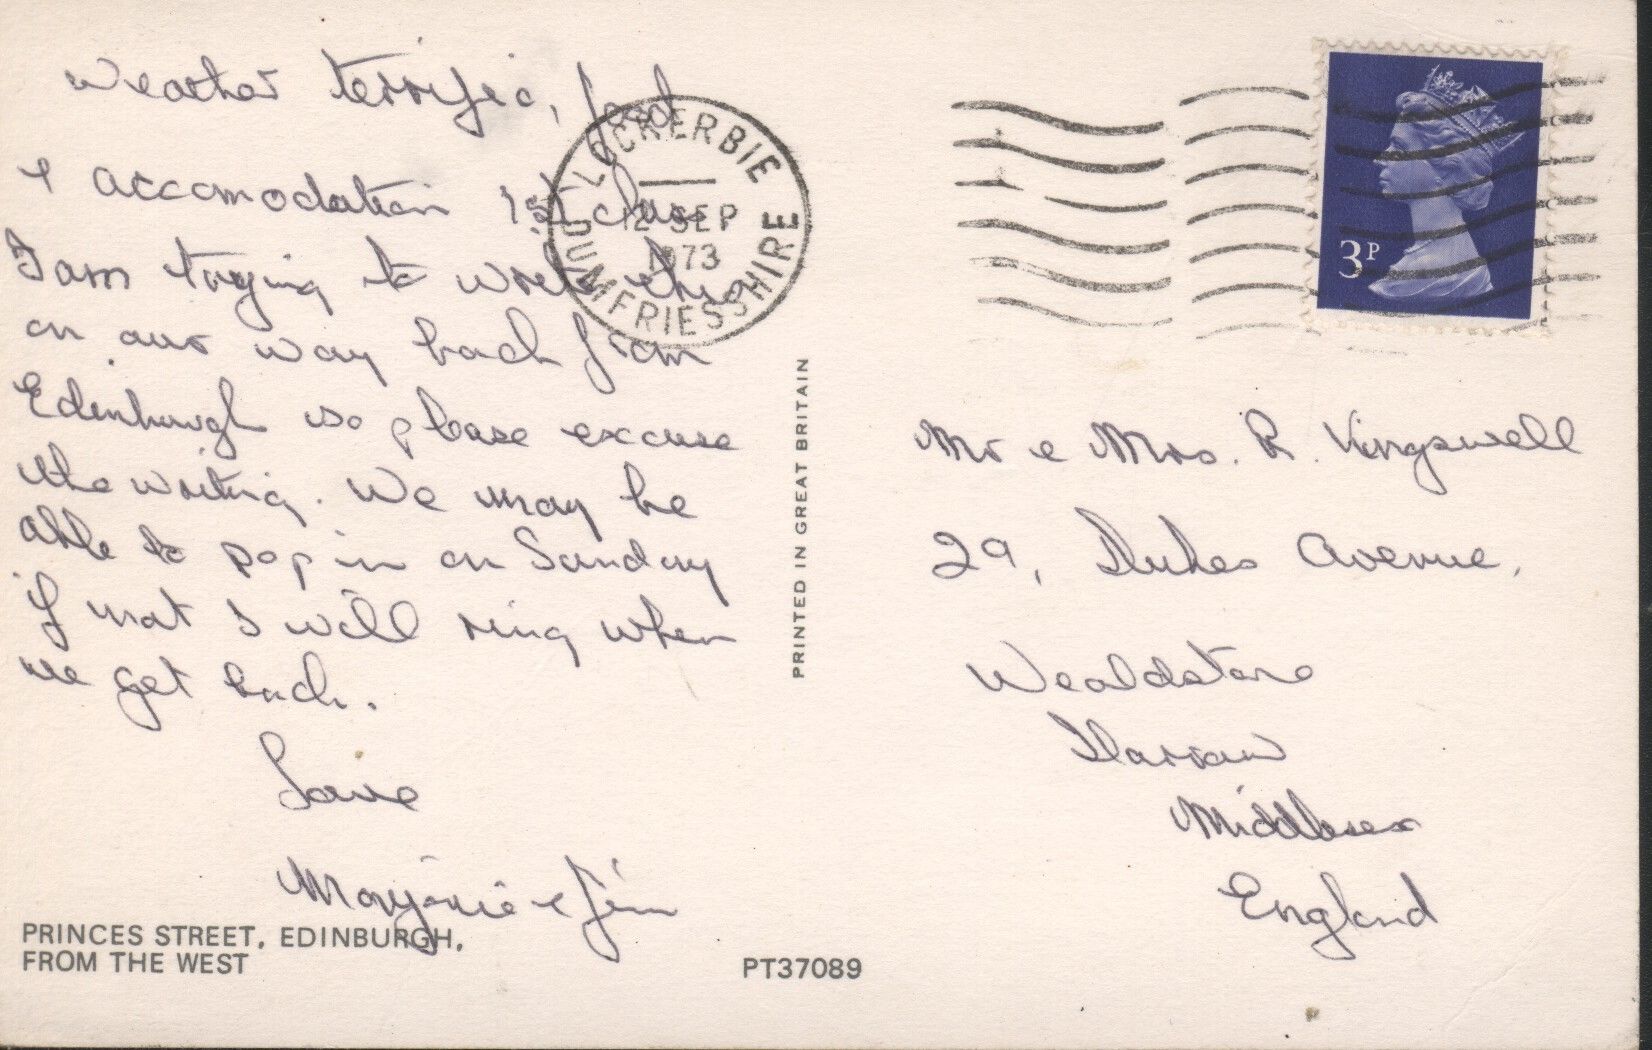 Weather terrific, food
& accomodation 1st class
I am trying to write this
on our way back from
Edinburgh so please excuse
the writing. We may be
able to pop in on Sunday
if not I will ring when
we get back.
Love
Marjorie & Jim
PRINCES STREET, EDINBURGH,
FROM THE WEST
PT37089
PRINTED IN GREAT BRITAIN
LOCKERBIE
12 SEP
1973
DUMFRIESSHIRE
3P
Mr & Mrs. R. Kingswell
29, Dukes Avenue,
Wealdstone
Harrow
Middlesex
England